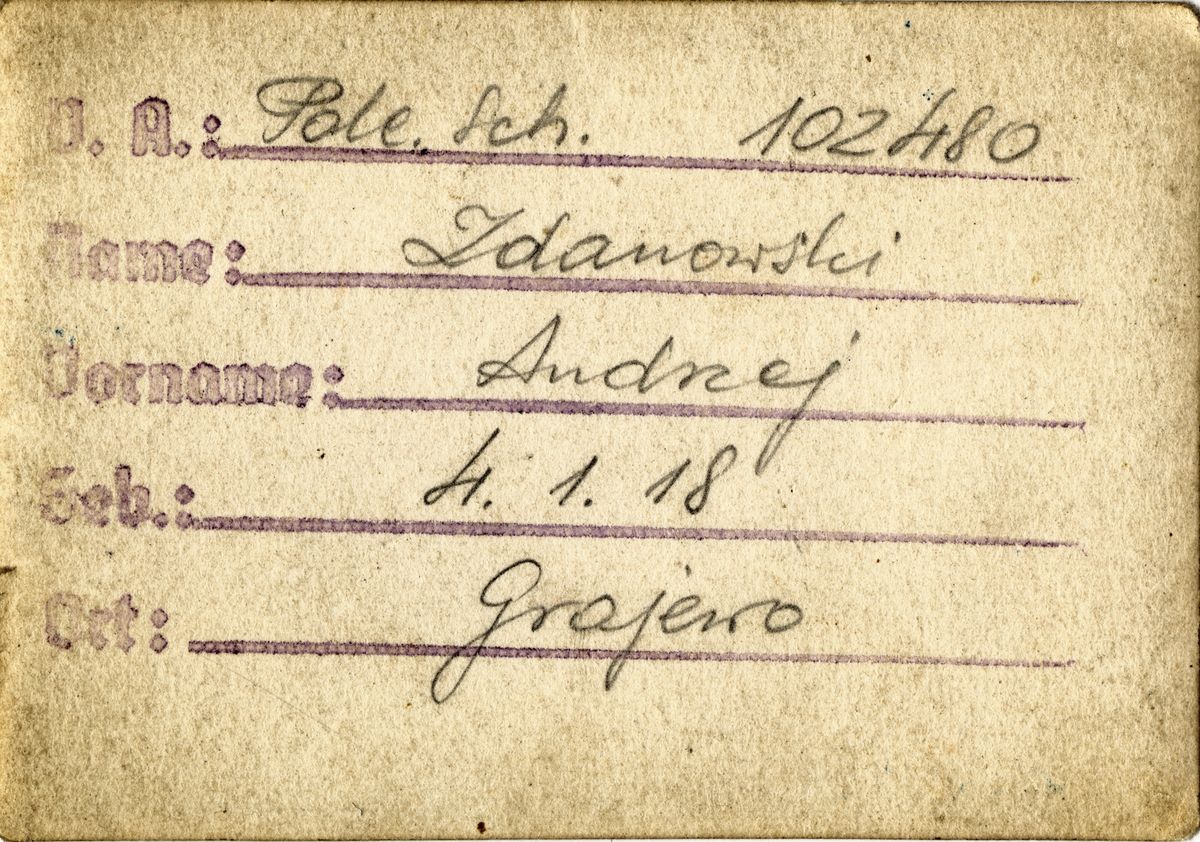 D. A.: Pole. Sch. 102480
Name: Zdanowski
Vorname: Andrzej
Geb.: 4. 1. 18
Ort: Grajewo